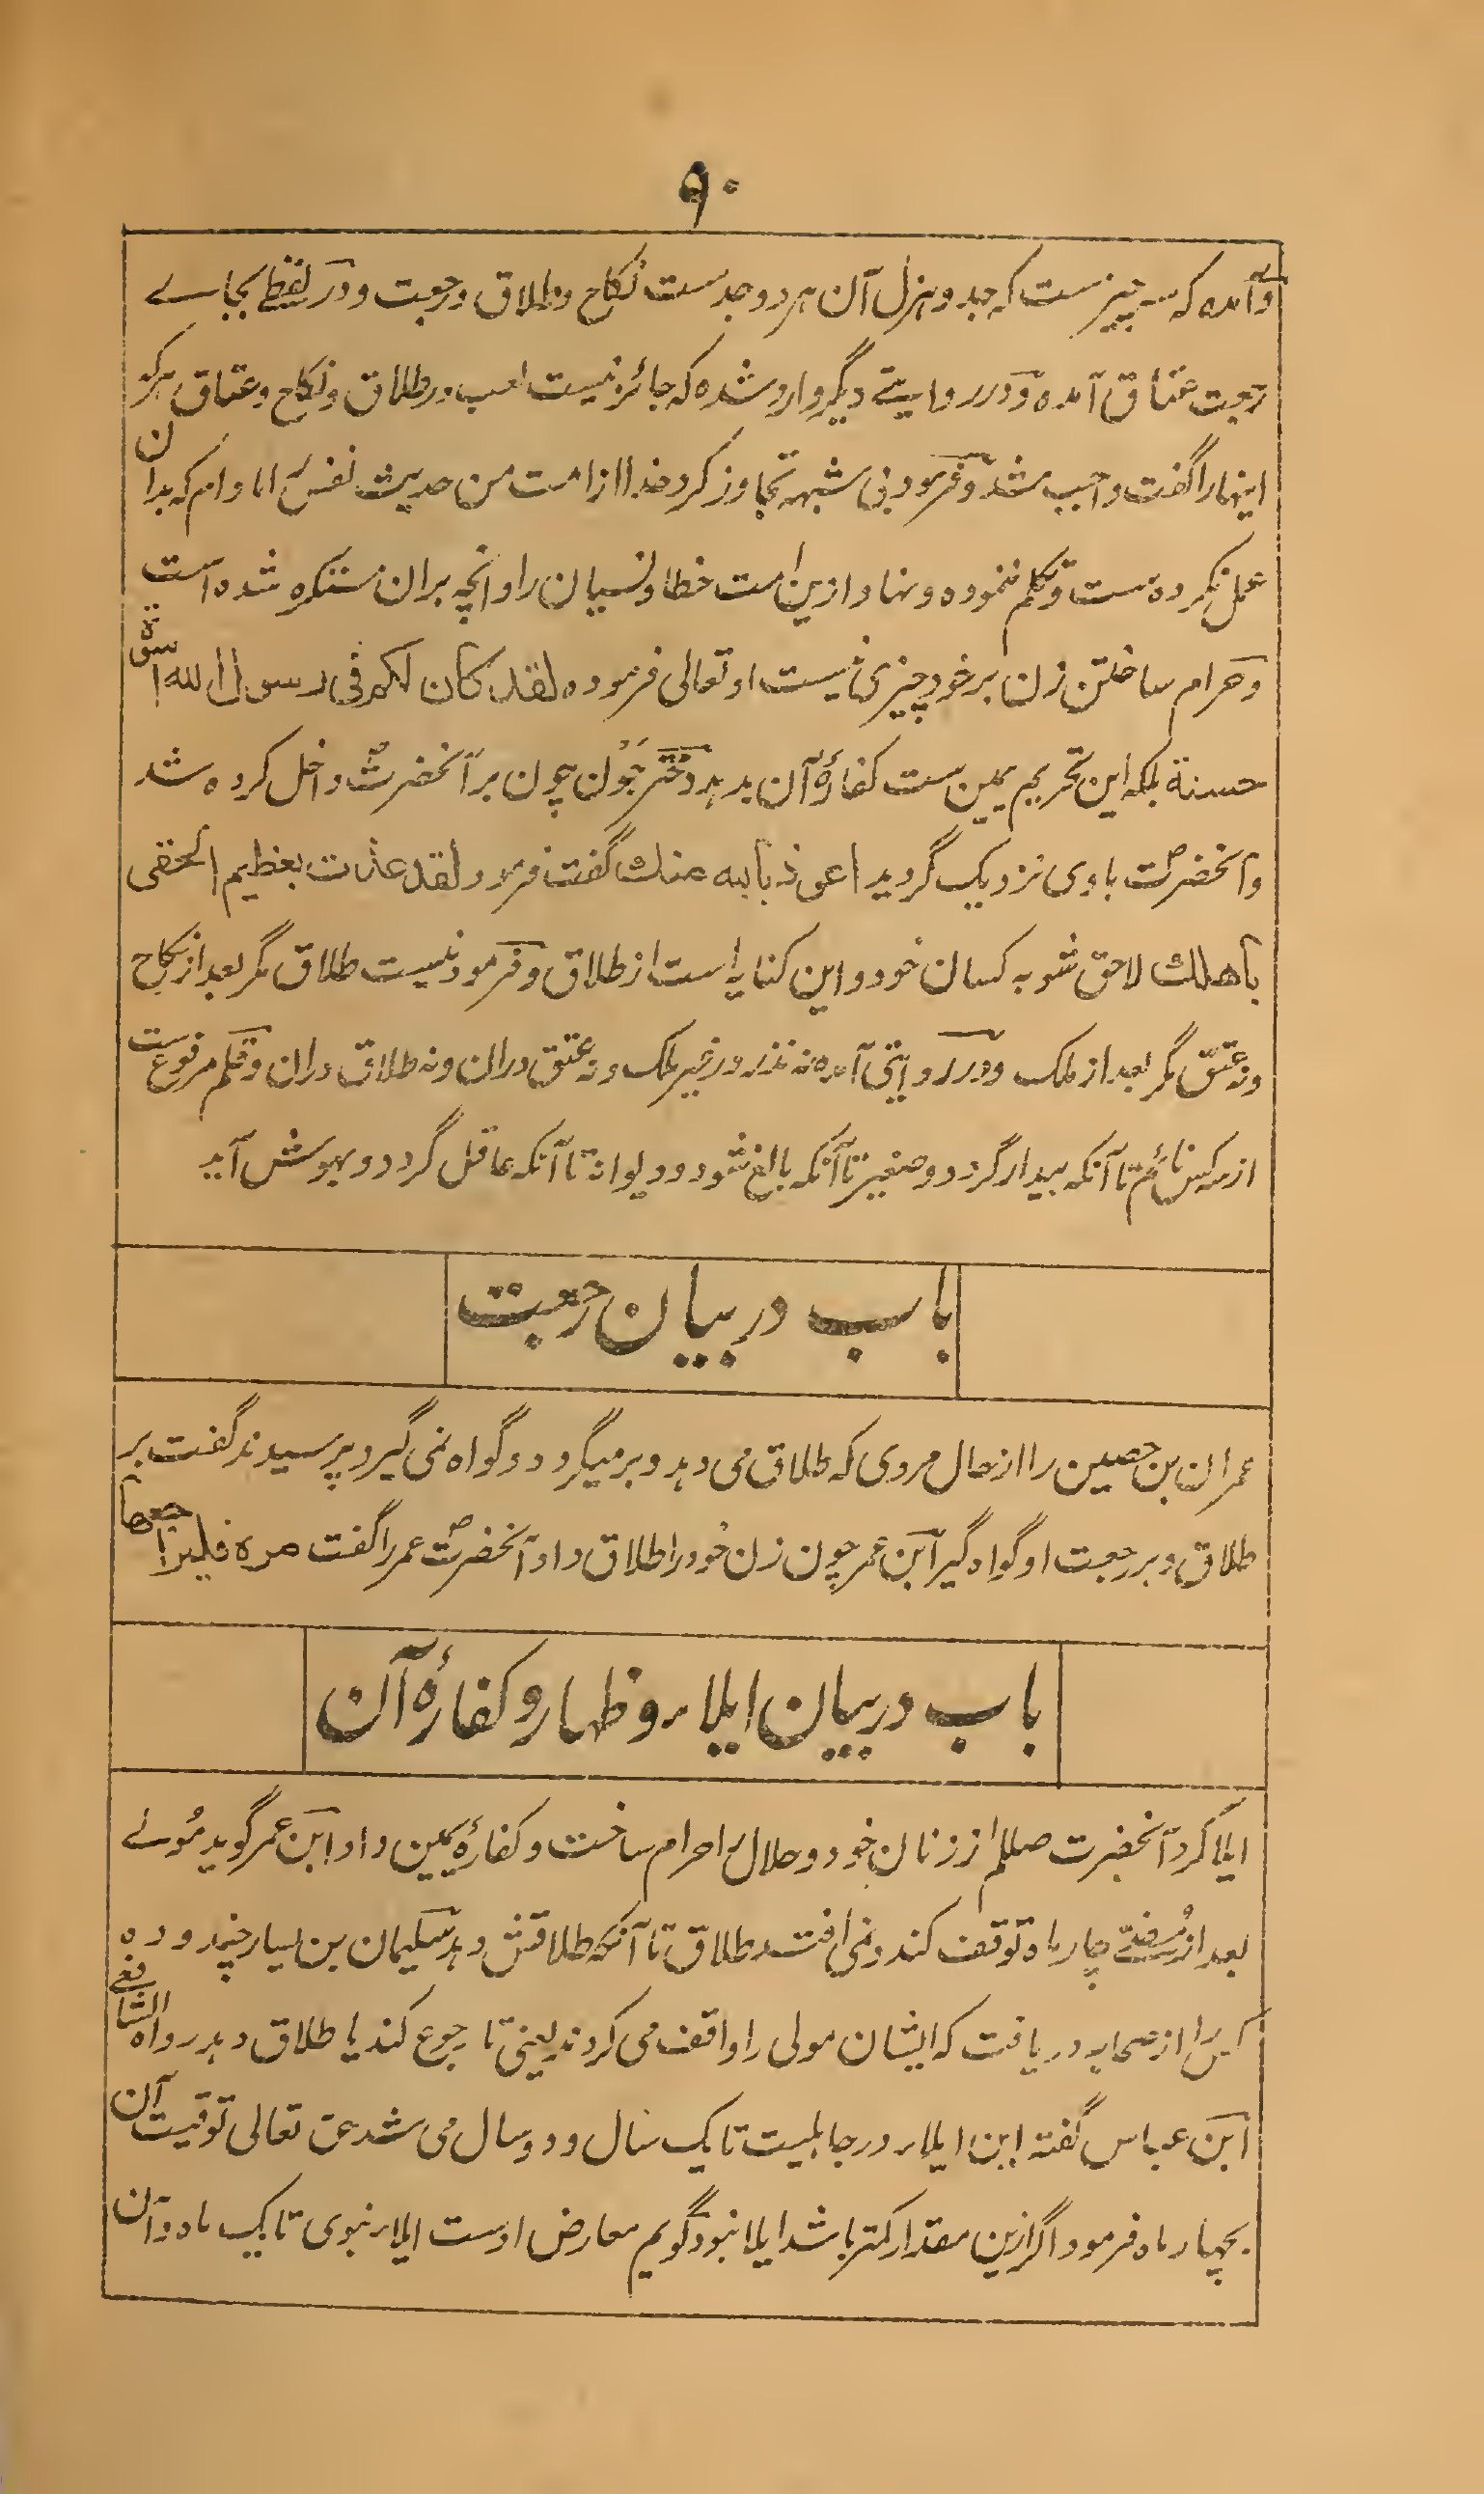 ۹۰
وآمده که سه چیزست که جد و هزل آن هر دو جدست نکاح و طلاق و رجعت و در لفظے بجاے
رجعت عتاق آمده و در روایتے دیگر وارد شده که جائز نیست لعب در طلاق و نکاح و عتاق هر که
اینها را گفت واجب شد و فرمود بی شبهه تجاوز کرد خدا از امت من حدیث نفس را مادام که بدان
عمل نکرده است و تکلم ننموده و نهاد ازین امت خطا و نسیان را و انچه بران مستکره شده است
و حرام ساختن زن بر خود چیزی نیست او تعالی فرموده لقد کان لکم فی رسول الله اسوة
حسنة بلکه این تحریم یمین ست کفارۀ آن بدهد دختر جَون چون بر آنحضرتؐ داخل کرده شد
و آنحضرتؐ با وی نزدیک گردید اعوذ بالله منك گفت فرمود لقد عذت بعظیم الحقی
باهلك لاحق شو به کسان خود و این کنایه است از طلاق و فرمود نیست طلاق مگر بعد از نکاح
و نه عتق مگر بعد از ملک و در روایتی آمده نه نذر در غیر ملک و نه عتق دران و نه طلاق دران و قلم مرفوع ست
از سه کس نائم تا آنکه بیدار گردد و صغیر تا آنکه بالغ شود و دیوانه تا آنکه عاقل گردد و بهوش آید
باب در بیان رجعت
عمران بن حصین را از حال مردی که طلاق می دهد و بر میگردد و گواه نمی گیرد پرسیدند گفت بر
طلاق و بر رجعت او گواه گیر ابن عمر چون زن خود را طلاق داد آنحضرتؐ عمر را گفت مره فلیراجعها
باب در بیان ایلاء و ظهار و کفارۀ آن
ایلا کرد آنحضرت صلعم از زنان خود و حلال را حرام ساخت و کفارۀ یمین داد ابن عمر گوید مُولے
بعد از مُضِیّ چار ماه توقف کند و نمی افتد طلاق تا آنکه طلاقش دهد سلیمان بن یسار چند و ده
کس را از صحابه دریافت که ایشان مولی را واقف می کردند یعنی تا رجوع کند یا طلاق دهد رواه الشافعی
ابن عباس گفته این ایلاء در جاهلیت تا یک سال و دو سال می شد حق تعالی توقیت آن
بچهار ماه فرمود اگر ازین مقدار کمتر باشد ایلا نبود گویم معارض اوست ایلاء نبوی تا یک ماه و آن